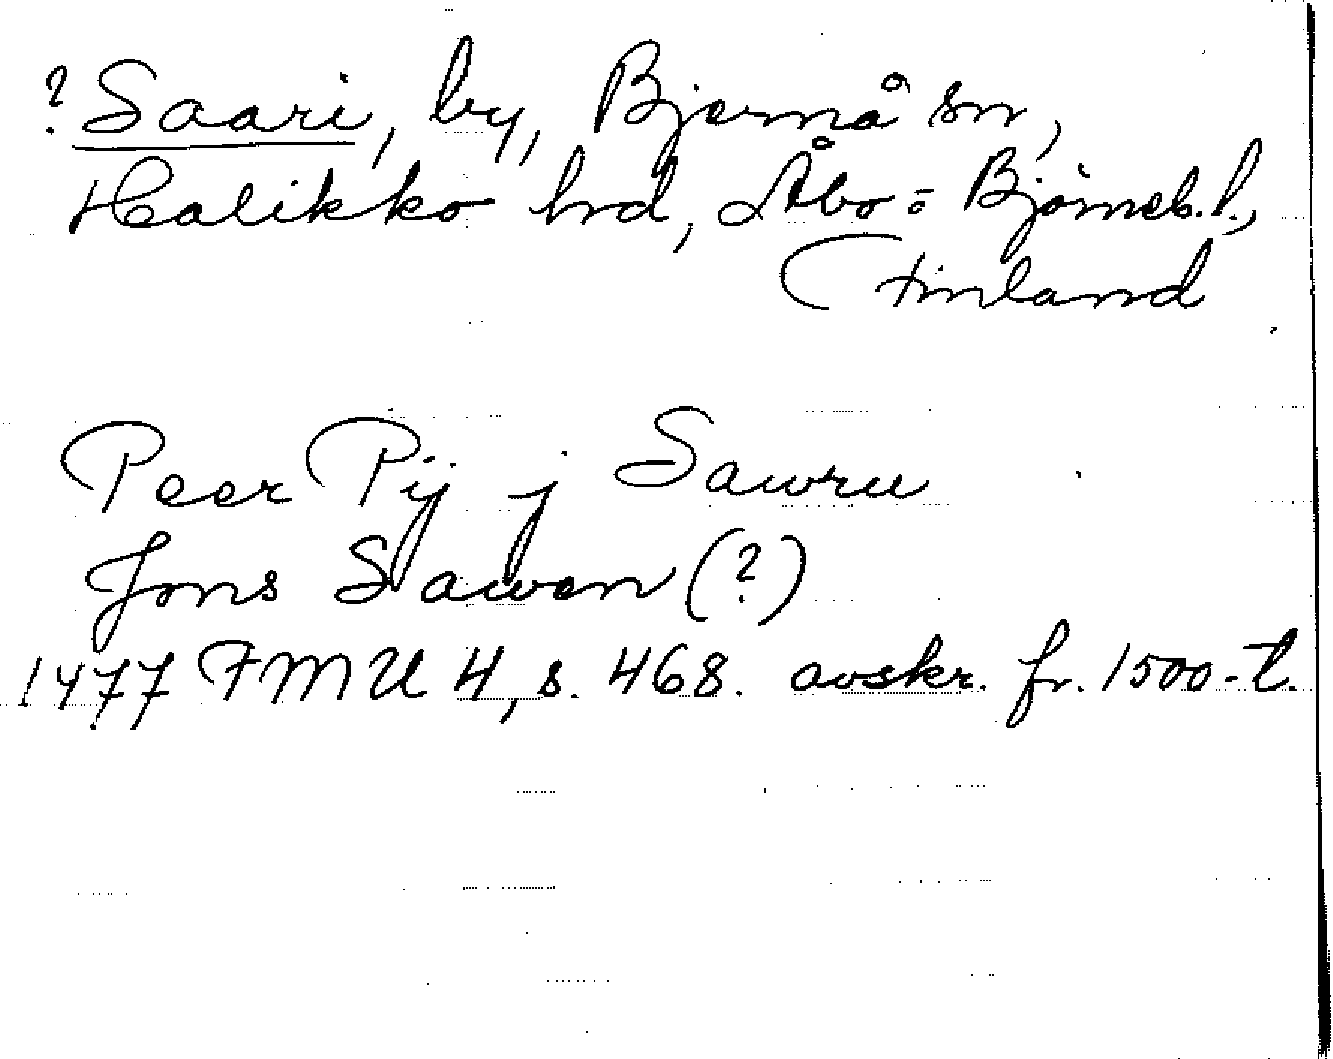 ? Saari, by, Bjernå sn,
Halikko hrd, Åbo = Björneb. l.,
Finland
Peer Pij j Sawru
Jons Sawen (?)
1477 FMU 4, s. 468. avskr. fr. 1500-t.